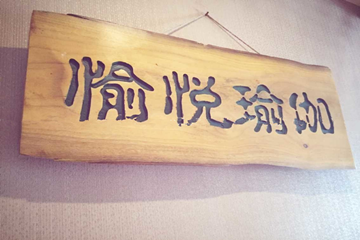 愉悦瑜伽